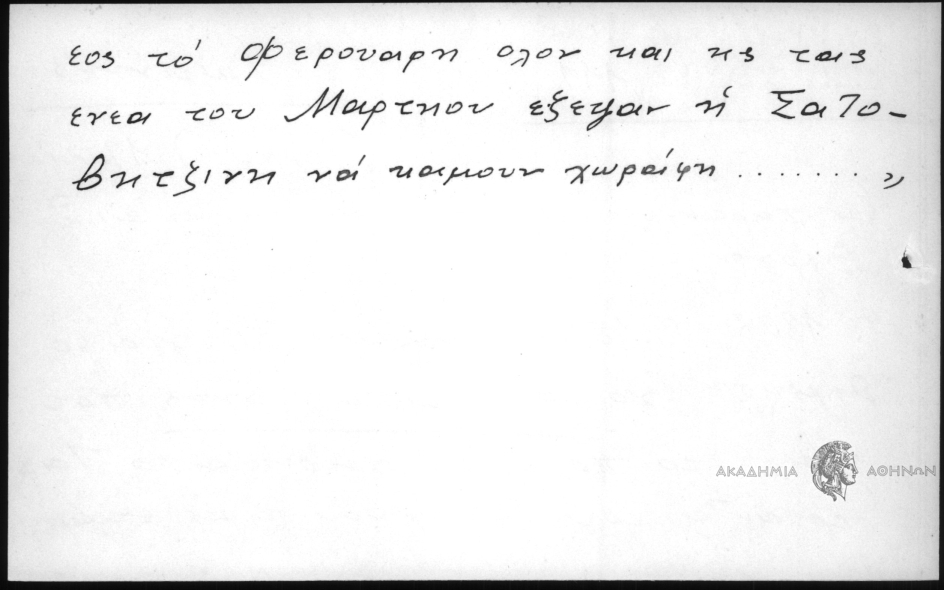 εος τό Φερουαρη ολον και ης ταις
ενεα του Μαρτηου εξεψαν ή Σαΐο-
βητζινη νά καμουν χωράφη ....... „
ΑΚΑΔΗΜΙΑ ΑΘΗΝΩΝ